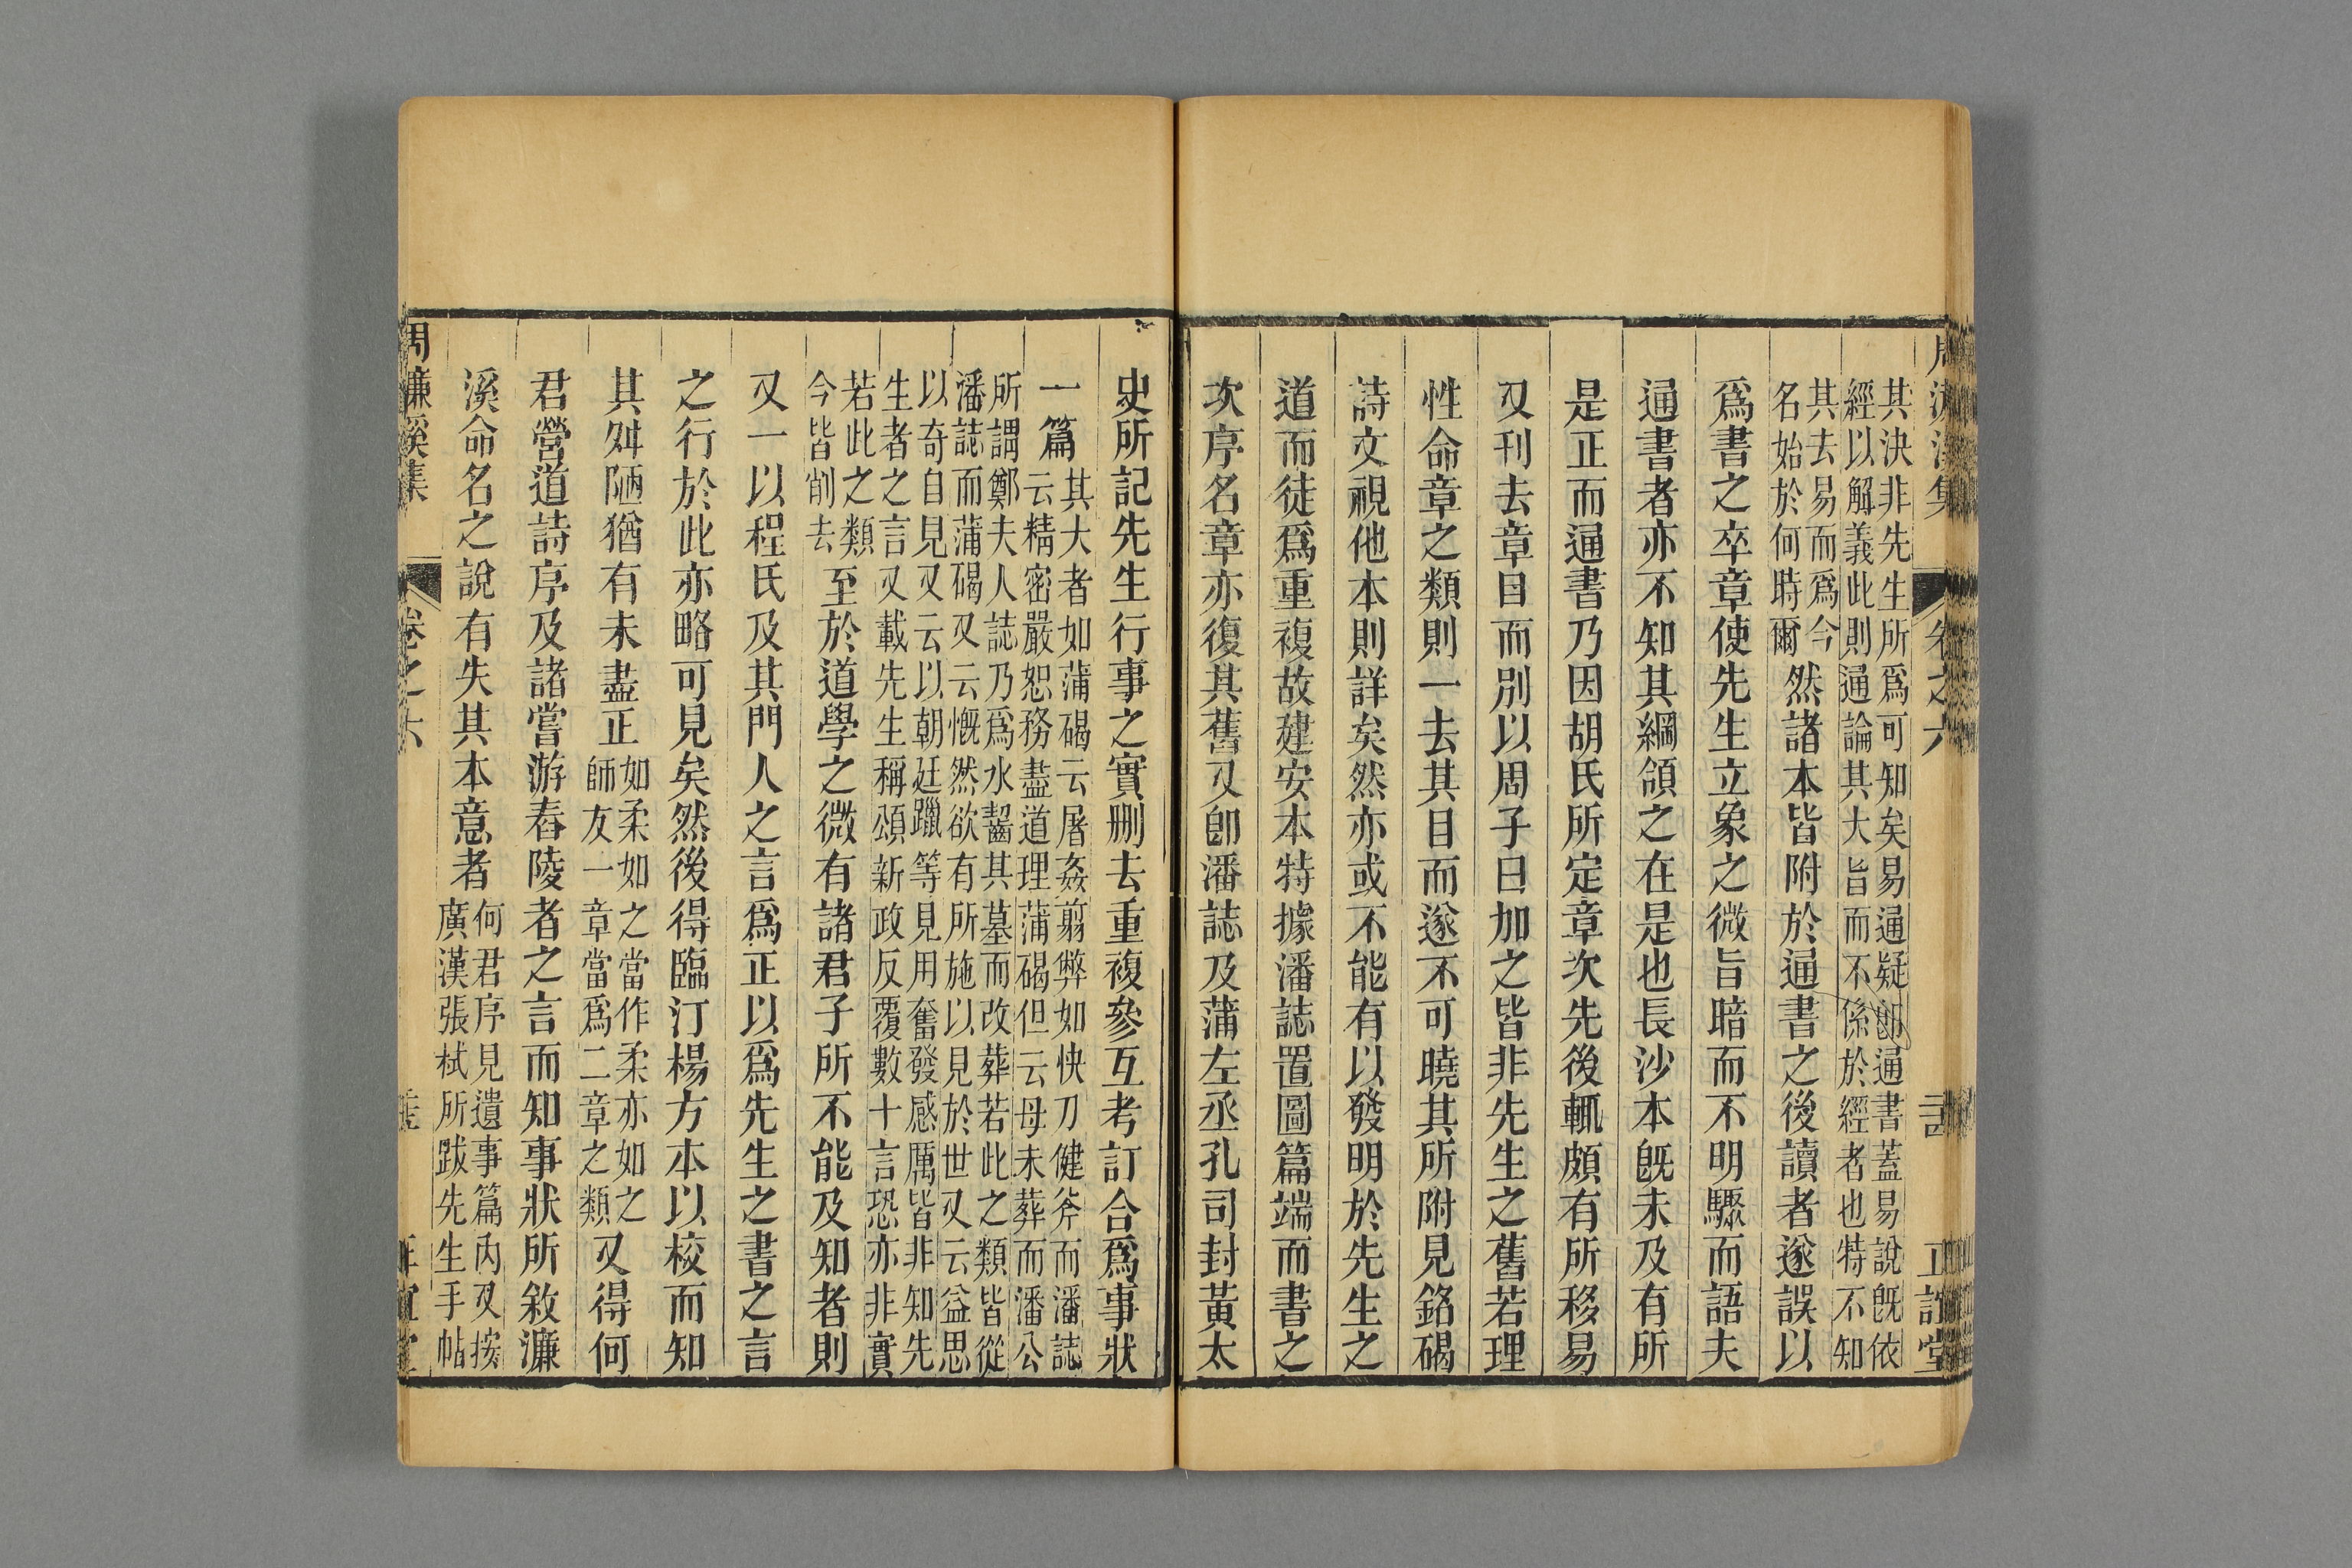 其決非先生所爲可知矣易通疑卽通書蓋易說旣依
經以解義此則通論其大旨而不係於經者也特不知
其去易而爲今
名始於何時爾
然諸本皆附於通書之後讀者遂誤以
爲書之卒章使先生立象之微旨暗而不明驟而語夫
通書者亦不知其綱領之在是也長沙本旣未及有所
是正而通書乃因胡氏所定章次先後輒頗有所移易
又刊去章目而別以周子曰加之皆非先生之舊若理
性命章之類則一去其目而遂不可曉其所附見銘碣
詩文視他本則詳矣然亦或不能有以發明於先生之
道而徒爲重複故建安本特據潘誌置圖篇端而書之
次序名章亦復其舊又卽潘誌及蒲左丞孔司封黃太
史所記先生行事之實刪去重複參互考訂合爲事狀
一篇
其大者如蒲碣云屠姦翦弊如快刀健斧而潘誌
云精密嚴恕務盡道理蒲碣但云母未葬而潘公
所謂鄭夫人誌乃爲水齧其墓而改葬若此之類皆從
潘誌而蒲碣又云慨然欲有所施以見於世又云益思
以奇自見又云以朝廷躐等見用奮發感厲皆非知先
生者之言又載先生稱頌新政反覆數十言恐亦非實
若此之類
今皆削去
至於道學之微有諸君子所不能及知者則
又一以程氏及其門人之言爲正以爲先生之書之言
之行於此亦略可見矣然後得臨汀楊方本以校而知
其舛陋猶有未盡正
如柔如之當作柔亦如之
師友一章當爲二章之類
又得何
君營道詩序及諸嘗游舂陵者之言而知事狀所敘濂
溪命名之說有失其本意者
何君序見遺事篇內又按
廣漢張栻所跋先生手帖
周濂溪集
卷之六